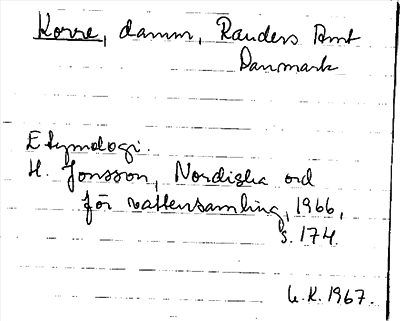 Korre, damm, Randers Amt
Danmark
Etymologi.
H. Jonsson, Nordiska ord
för vattensamling, 1966,
s. 174.
U.K. 1967.